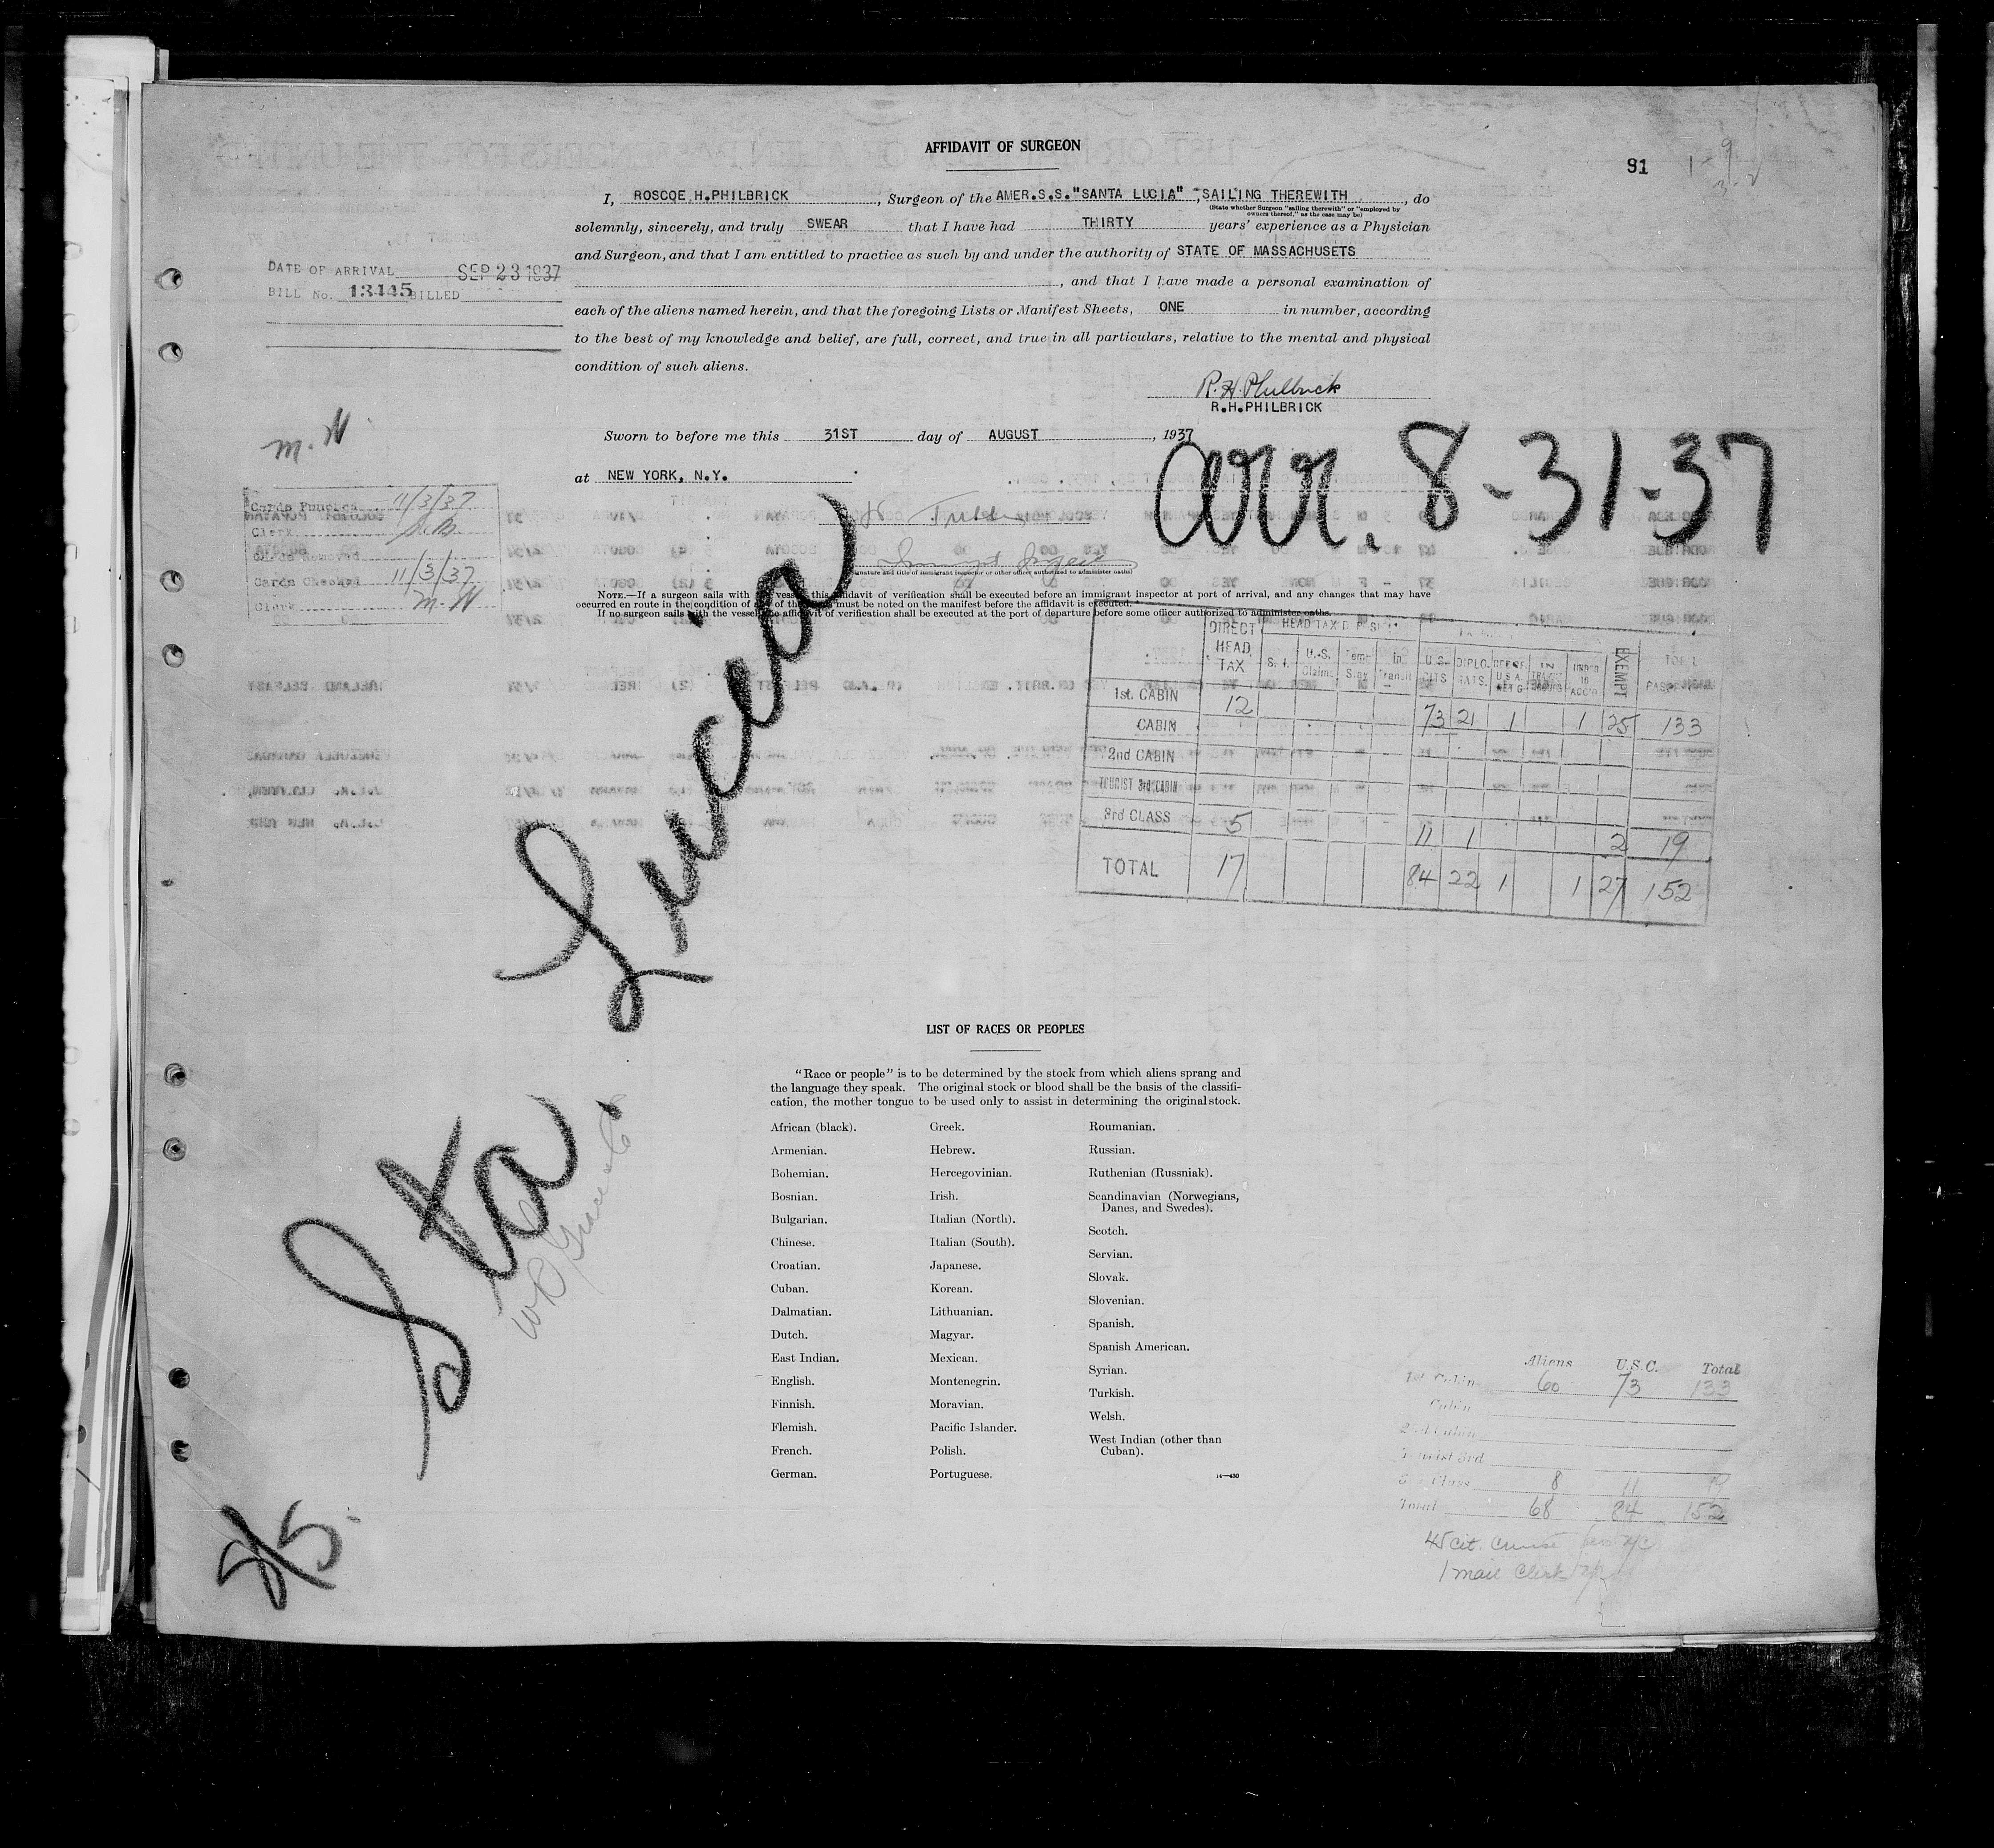 AFFIDAVIT OF SURGEON
91
I, ROSCOE H.PHILBRICK, Surgeon of the AMER.S.S."SANTA LUCIA", SAILING THEREWITH, do
(State whether Surgeon "sailing therewith" or "employed by
owners thereof," as the case may be)
solemnly, sincerely, and truly SWEAR that I have had THIRTY years' experience as a Physician
and Surgeon, and that I am entitled to practice as such by and under the authority of STATE OF MASSACHUSETS
, and that I have made a personal examination of
each of the aliens named herein, and that the foregoing Lists or Manifest Sheets, ONE in number, according
to the best of my knowledge and belief, are full, correct, and true in all particulars, relative to the mental and physical
condition of such aliens.
DATE OF ARRIVAL SEP 23 1937
BILL No. 13445 BILLED
R.H. Philbrick
R.H.PHILBRICK
Sworn to before me this 31ST day of AUGUST, 1937
at NEW YORK, N.Y.
arr. 8-31-37
M.W.
Cards Punched 11/3/37
Clerk
Cards Checked 11/3/37
Clerk M.W
(Signature and title of immigrant inspector or other officer authorized to administer oaths)
NOTE.—If a surgeon sails with the vessel, this affidavit of verification shall be executed before an immigrant inspector at port of arrival, and any changes that may have
occurred en route in the condition of any of the aliens must be noted on the manifest before the affidavit is executed.
If no surgeon sails with the vessel, the affidavit of verification shall be executed at the port of departure before some officer authorized to administer oaths.
DIRECT HEAD TAX HEAD TAX DEPOSIT
S. I. U.S. Claim. Temp. Stay In Transit U.S. CITS DIPLO-MATS. IN UNDER 16 ACC'D EXEMPT TOTAL
1st. CABIN 12 73 21 1 1 25 133
CABIN
2nd CABIN
TOURIST 3rd CABIN
3rd CLASS 5 11 1 2 19
TOTAL 17 84 22 1 1 27 152
Sta. Lucia
LIST OF RACES OR PEOPLES
"Race or people" is to be determined by the stock from which aliens sprang and
the language they speak. The original stock or blood shall be the basis of the classifi-
cation, the mother tongue to be used only to assist in determining the original stock.
African (black).
Armenian.
Bohemian.
Bosnian.
Bulgarian.
Chinese.
Croatian.
Cuban.
Dalmatian.
Dutch.
East Indian.
English.
Finnish.
Flemish.
French.
German.
Greek.
Hebrew.
Hercegovinian.
Irish.
Italian (North).
Italian (South).
Japanese.
Korean.
Lithuanian.
Magyar.
Mexican.
Montenegrin.
Moravian.
Pacific Islander.
Polish.
Portuguese.
Roumanian.
Russian.
Ruthenian (Russniak).
Scandinavian (Norwegians,
Danes, and Swedes).
Scotch.
Servian.
Slovak.
Slovenian.
Spanish.
Spanish American.
Syrian.
Turkish.
Welsh.
West Indian (other than
Cuban).
14—430
Aliens U.S.C. Total
1st Cabin 60 73 133
Cabin
2nd Cabin
Tourist 3rd
3rd Class 8 11 19
Total 68 84 152
45 cit. cruise
1 mail Clerk